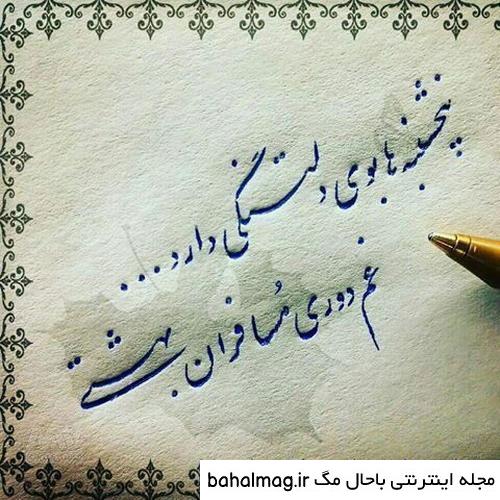 پنجشنبه ها بوی دلتنگی دارد...
غم دوری مُسافران بهشتی
مجله اینترنتی باحال مگ bahalmag.ir